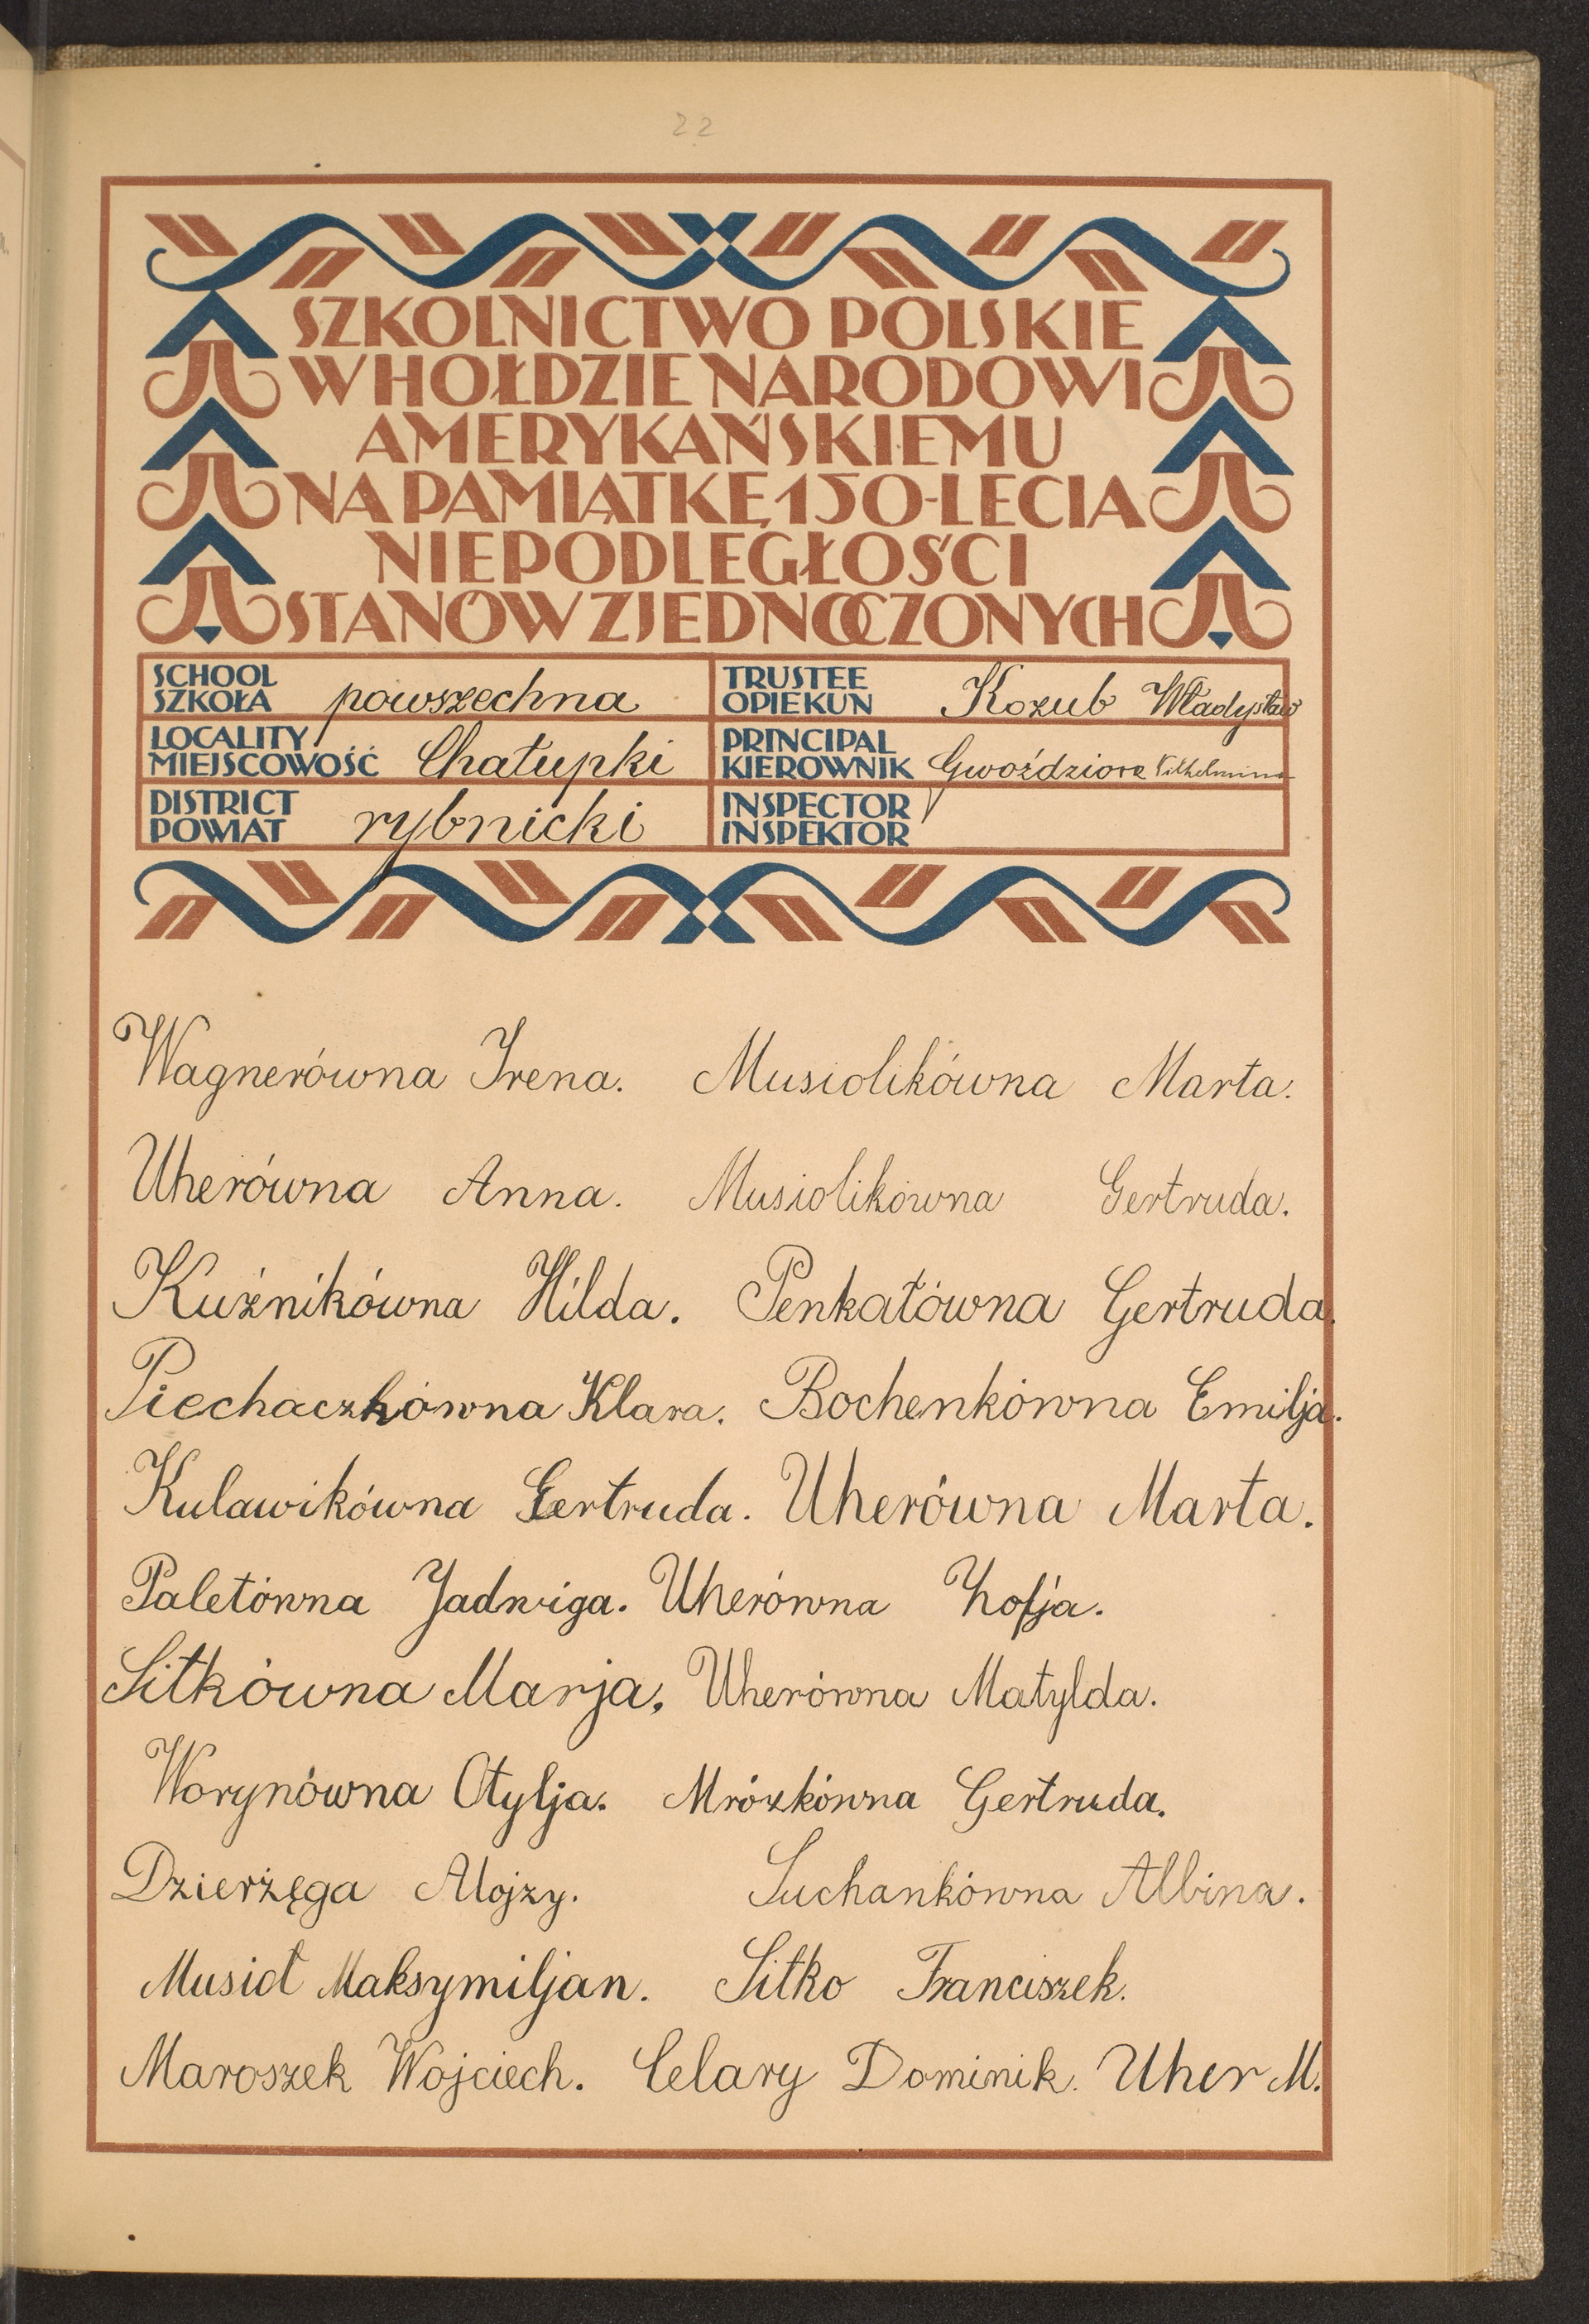 22
SZKOLNICTWO POLSKIE
W HOŁDZIE NARODOWI
AMERYKAŃSKIEMU
NA PAMIĄTKĘ 150-LECIA
NIEPODLEGŁOŚCI
STANÓW ZJEDNOCZONYCH
SCHOOL
SZKOŁA powszechna
TRUSTEE
OPIEKUN Kozub Władysław
LOCALITY
MIEJSCOWOŚĆ Chałupki
PRINCIPAL
KIEROWNIK Gwoździora Wilhelmina
DISTRICT
POWIAT rybnicki
INSPECTOR
INSPEKTOR
Wagnerówna Irena. Musiolikówna Marta.
Uherówna Anna. Musiolikówna Gertruda.
Kuźnikówna Hilda. Penkałówna Gertruda.
Piechaczkówna Klara. Bochenkówna Emilja.
Kulawikówna Gertruda. Uherówna Marta.
Paletówna Jadwiga. Uherówna Zofja.
Sitkówna Marja. Uherówna Matylda.
Worynówna Otylja. Mrózkówna Gertruda.
Dzierżęga Alojzy. Suchankówna Albina.
Musioł Maksymiljan. Sitko Franciszek.
Maroszek Wojciech. Celary Dominik. Uher M.